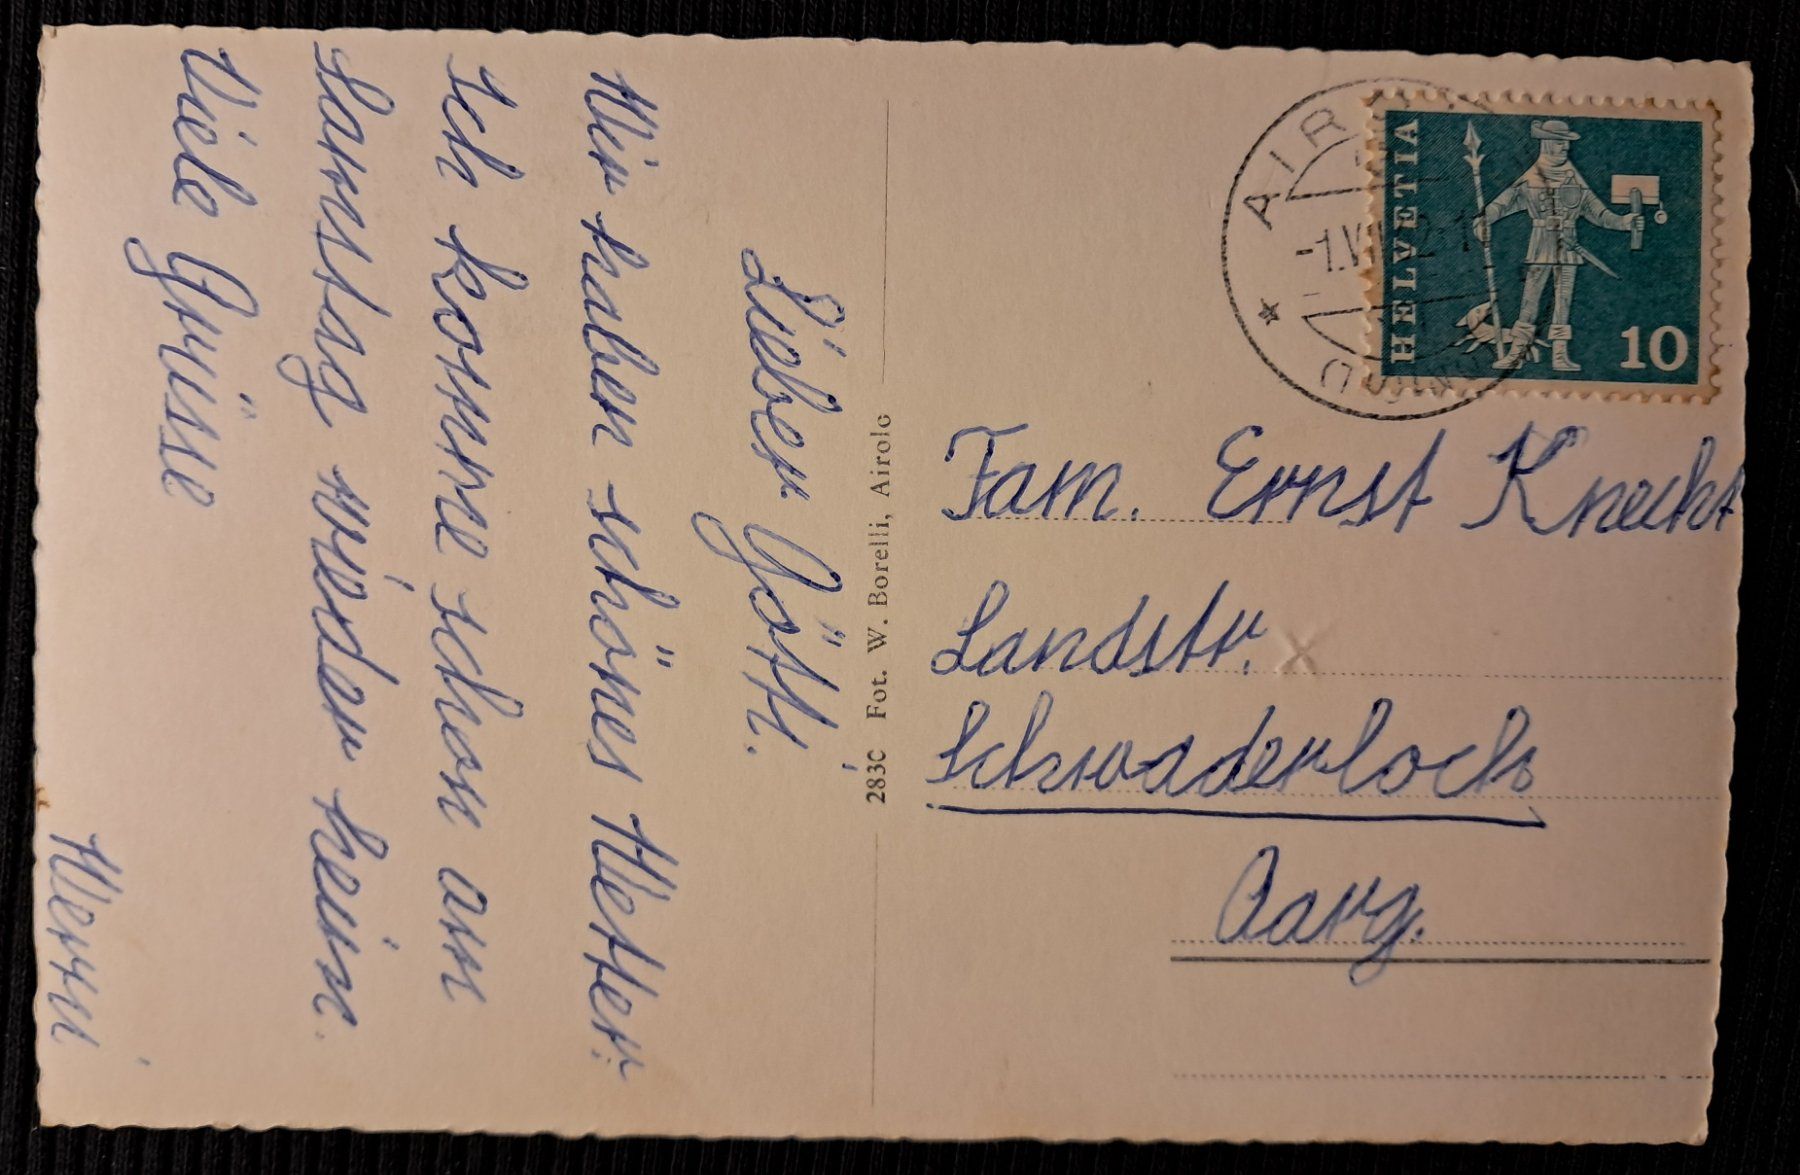 Lieber Götti.
Wir haben schönes Wetter.
Ich komme schon am
Samstag wieder heim.
Viele Grüsse
Werni
283C Fot. W. Borelli, Airolo
HELVETIA
10
Fam. Ernst Knecht
Landstr.
Schwaderloch
Aarg.